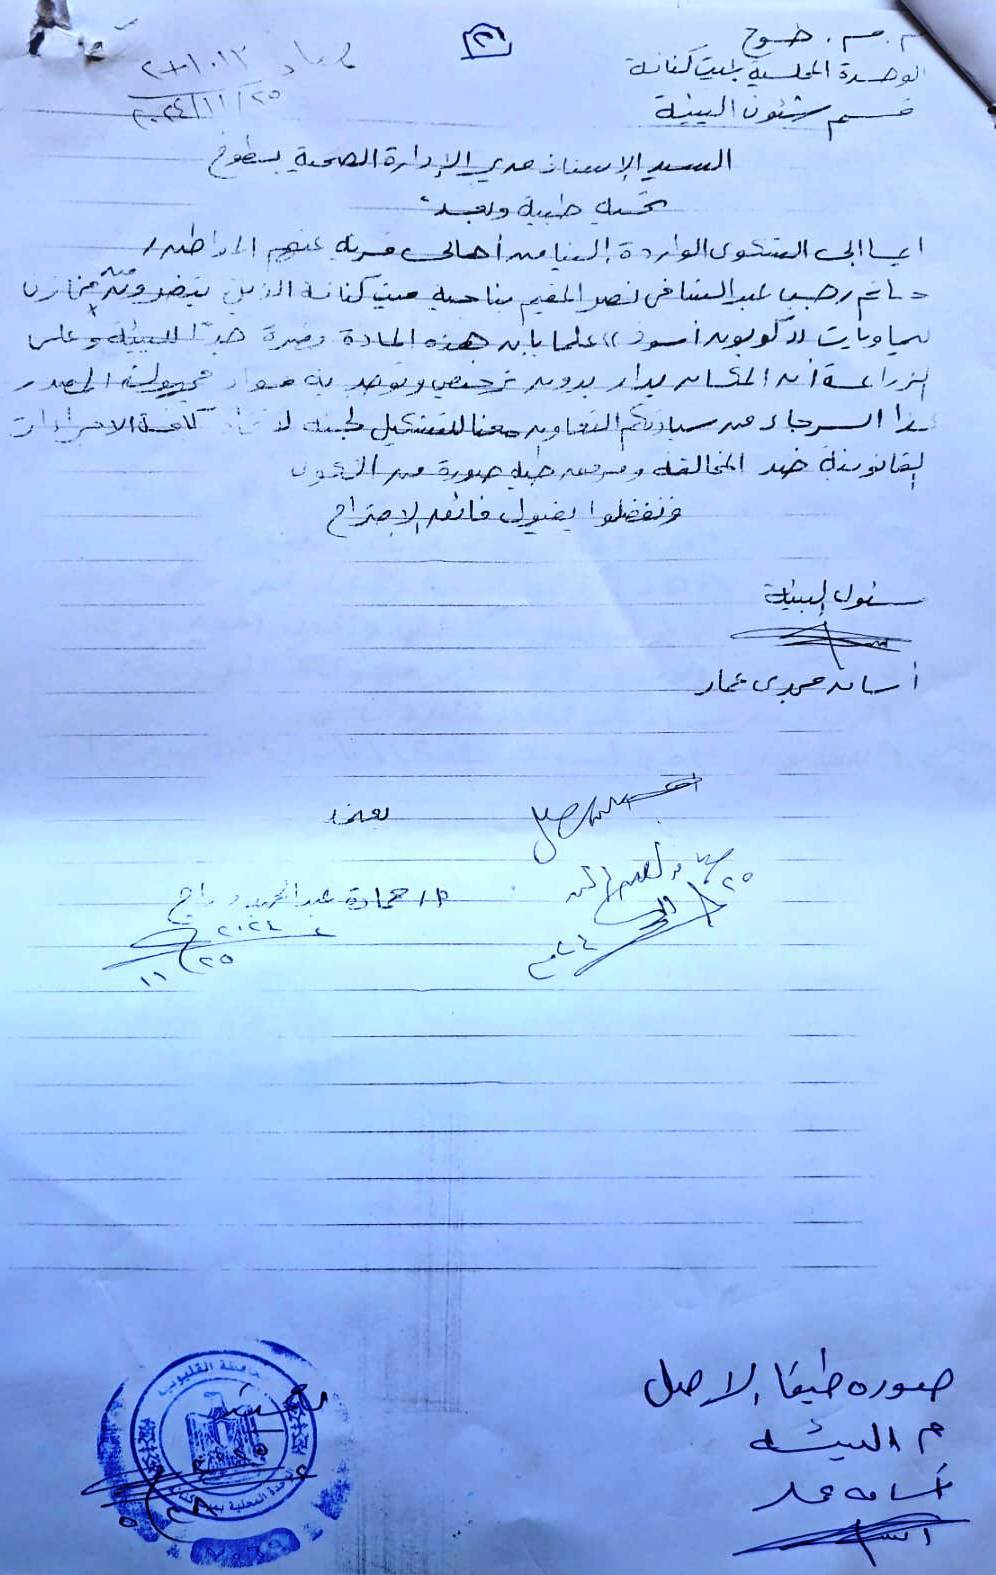 م. م. طوخ
الوحدة المحلية بميت كنانة
قسم شئون البيئة
٢٠٢٤/١١/٢٥
السيد الاستاذ مدير الإدارة الصحية بطوخ
تحية طيبة وبعد
ايماء الى الشكوى الواردة إلينا من أهالى قرية عنهم المواطن /
حاتم رجب عبد الشافى نصر المقيم بناحية ميت كنانة الذين يتضررون من مخازن
كيماويات (( كربون أسود )) علما بان هذه المادة مضرة جدًا للبيئة وعلى
الزراعة أن المكان يدار بدون ترخيص ويوجد به مواد مجهولة المصدر
لذا الرجاء من سيادتكم التعاون معنا لتشكيل لجنة لاتخاذ كافة الاجراءات
القانونية ضد المخالفة ومرفق طيه صورة من الشكوى
وتفضلوا بقبول فائق الاحترام
مسئول البيئة
أسامه مجدى عمار
يعتمد
م/ حمادة عبد الحميد
٢٠٢٤
١١ / ٢٥
صوره طبقا الاصل
م البيئه
أسامه عمار
محافظة القليوبية
الوحدة المحلية بميت كنانة